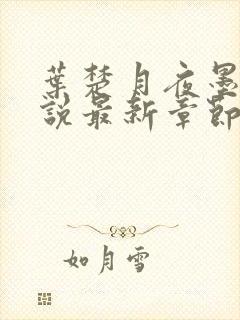 葉楚月夜墨
說最新章節
如月雪